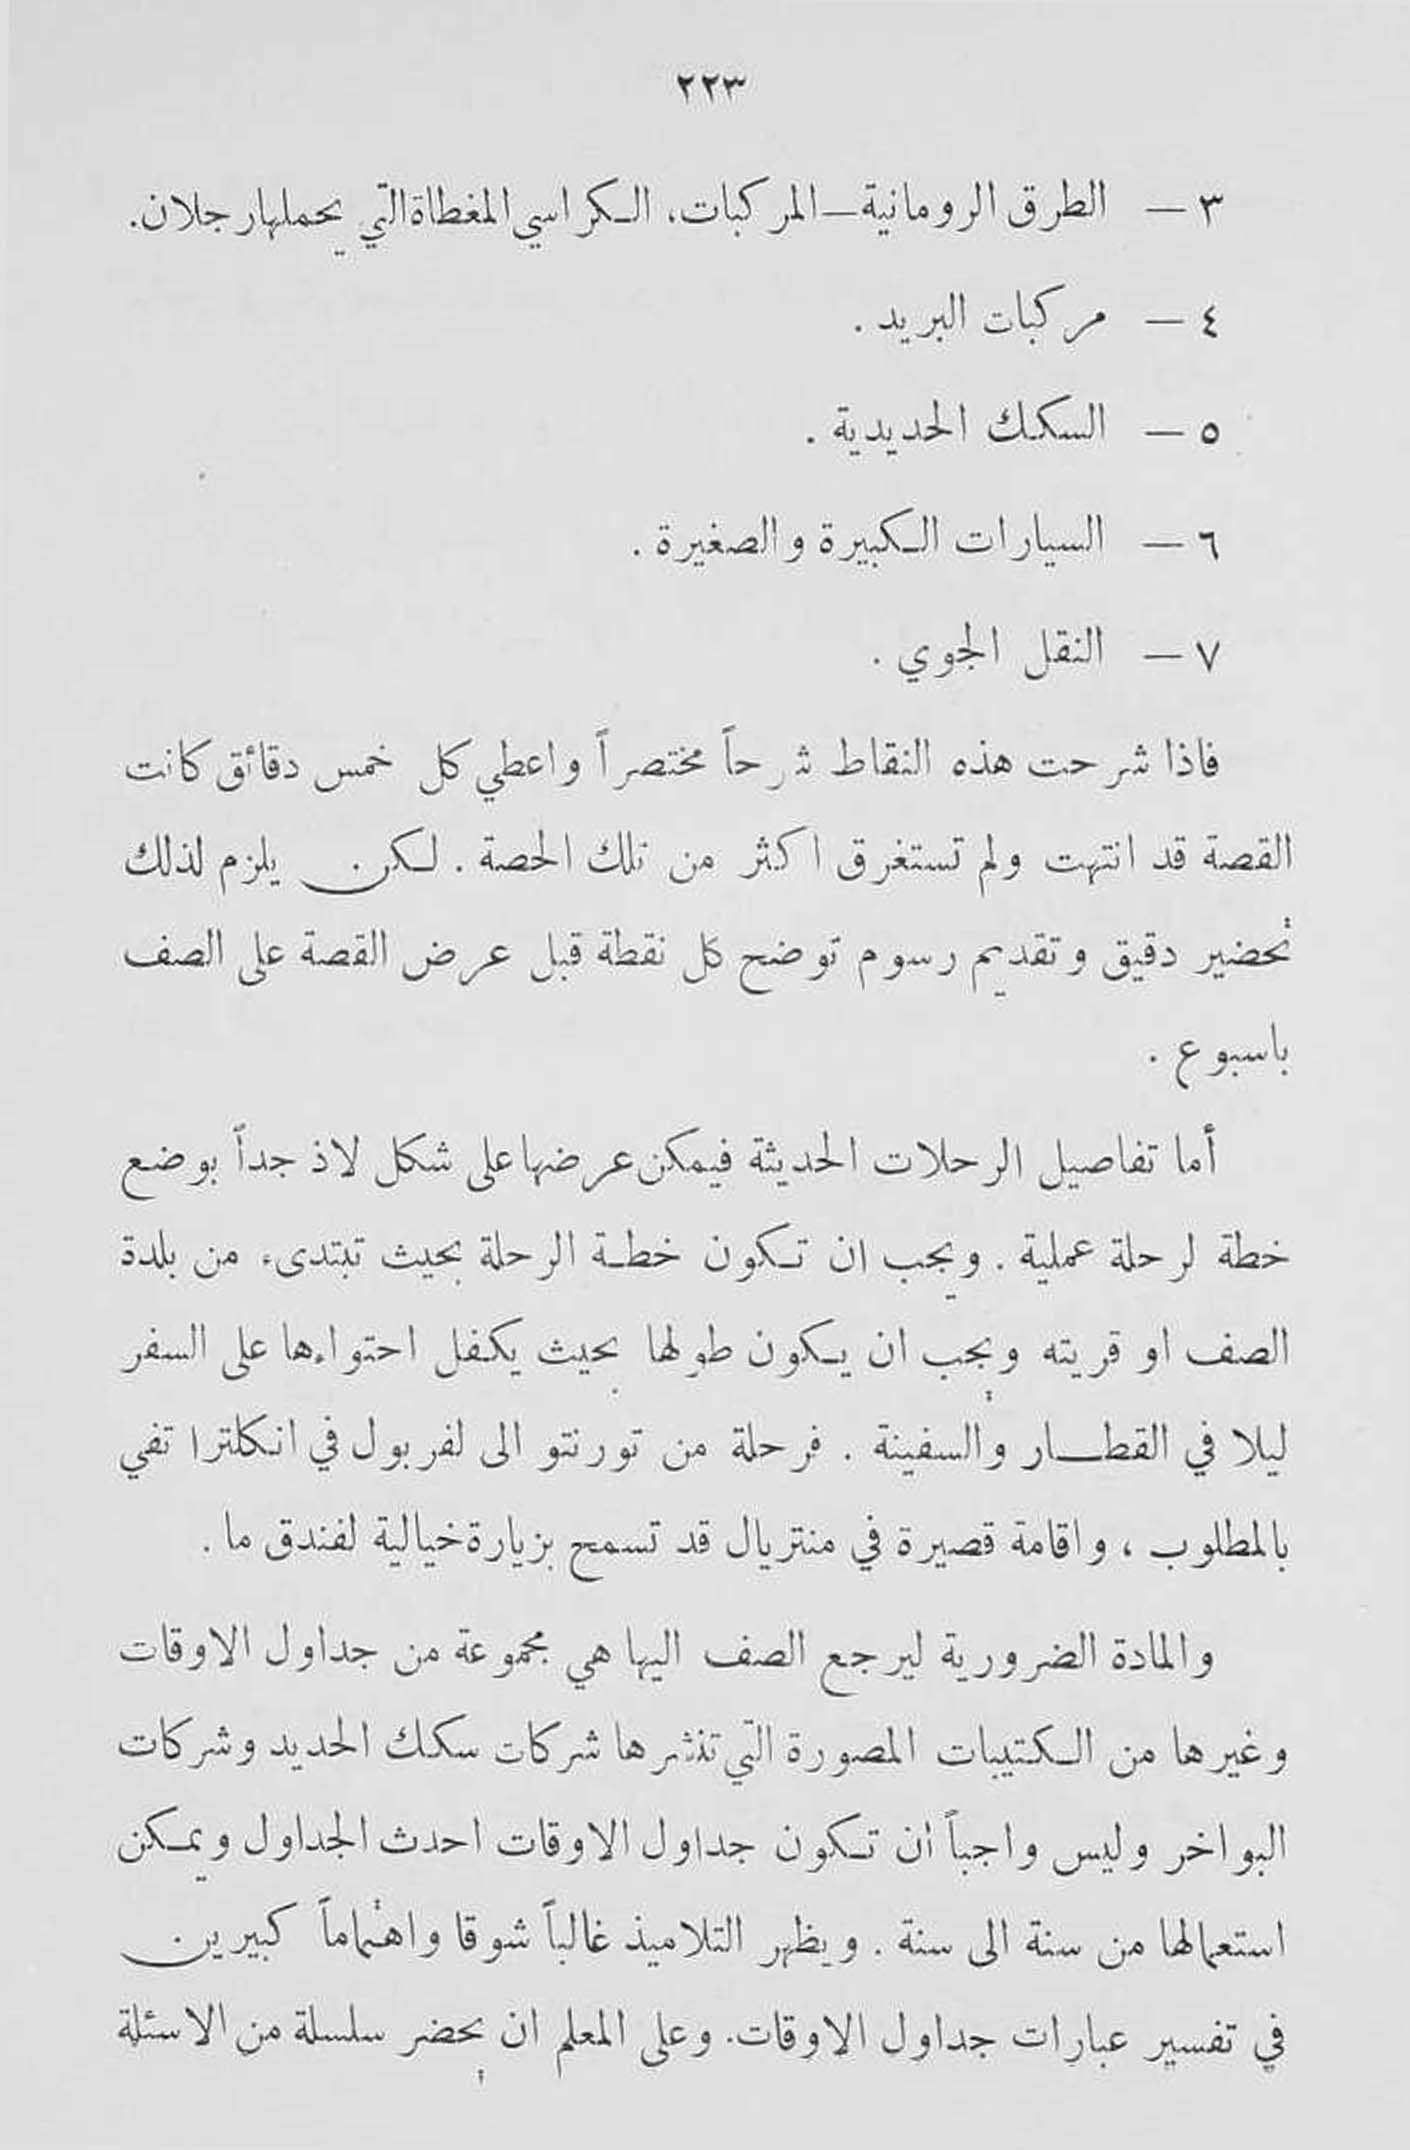 ٢٢٣
٣ — الطرق الرومانية — المركبات، الكراسي المغطاة التي يحملها رجلان.
٤ — مركبات البريد .
٥ — السكك الحديدية .
٦ — السيارات الكبيرة والصغيرة .
٧ — النقل الجوي .
فاذا شرحت هذه النقاط شرحاً مختصراً واعطي كل خمس دقائق كانت
القصة قد انتهت ولم تستغرق اكثر من تلك الحصة . لكن يلزم لذلك
تحضير دقيق وتقديم رسوم توضح كل نقطة قبل عرض القصة على الصف
باسبوع .
أما تفاصيل الرحلات الحديثة فيمكن عرضها على شكل لاذ جداً بوضع
خطة لرحلة عملية . ويجب ان تكون خطة الرحلة بحيث تبتدىء من بلدة
الصف او قريته ويجب ان يكون طولها بحيث يكفل احتواءها على السفر
ليلا في القطار والسفينة . فرحلة من تورنتو الى لفربول في انكلترا تفي
بالمطلوب ، واقامة قصيرة في منتريال قد تسمح بزيارة خيالية لفندق ما .
والمادة الضرورية ليرجع الصف اليها هي مجموعة من جداول الاوقات
وغيرها من الكتيبات المصورة التي تنشرها شركات سكك الحديد وشركات
البواخر وليس واجباً ان تكون جداول الاوقات احدث الجداول ويمكن
استعمالها من سنة الى سنة . ويظهر التلاميذ غالباً شوقا واهتماماً كبيرين
في تفسير عبارات جداول الاوقات. وعلى المعلم ان يحضر سلسلة من الاسئلة